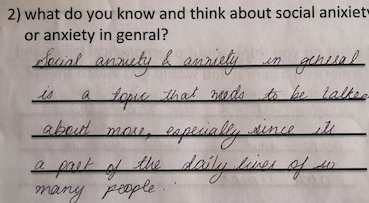 2) what do you know and think about social anixiety
or anxiety in genral?
Social anxiety & anxiety in general
is a topic that needs to be talked
about more, especially since its
a part of the daily lives of so
many people.